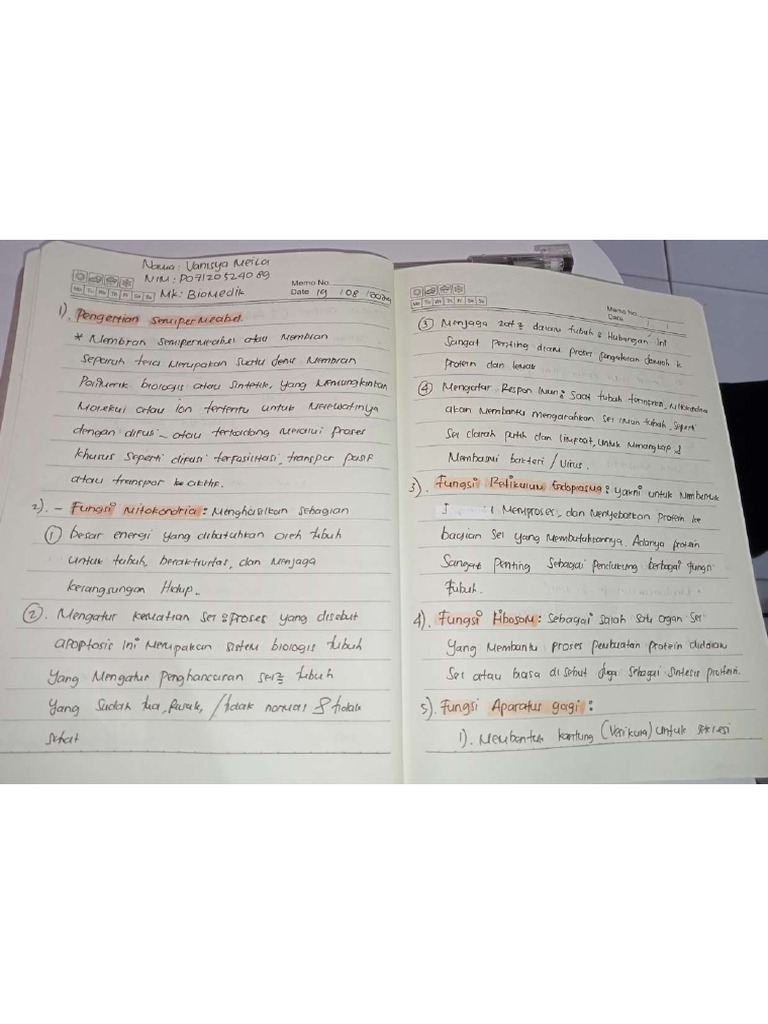 Nama: Vanisya Meila
NIM: P07120524089
Mk: Biomedik
Memo No.
Date 19 / 08 /
Mo Tu We Th Fr Sa Su
1). Pengertian Semipermeabel.
* Membran Semipermeabel atau Membran
Separuh tela Merupakan Suatu Jenis Membran
Polimerik biologis atau Sintetik, yang Memungkinkan
Molekul atau Ion tertentu untuk Melewatinya
dengan difusi atau terkadang Melalui Proses
khusus seperti difusi terfasilitasi, transpor pasif
atau transpor ke aktif.
2). - Fungsi Mitokondria : Menghasilkan Sebagian
① besar energi yang dibutuhkan oleh tubuh
untuk tubuh, beraktivitas, dan Menjaga
kelangsungan Hidup..
②. Mengatur kematian Sel : Proses yang disebut
apoptosis Ini Merupakan sistem biologis tubuh
Yang Mengatur Penghancuran sel2 tubuh
Yang Sudah tua, Rusak, / tidak normal & tidak
Sehat
Memo No.
Date / /
Mo Tu We Th Fr Sa Su
③ Menjaga zat2 dalam tubuh : Hubungan Ini
Sangat Penting dlam Proses Pengaturan
Protein dan lemak
④ Mengatur Respon Imun : Saat tubuh Mitokondria
akan Membantu mengarahkan Sel imun tubuh, Seperti
Sel darah putih dan limfosit, Untuk Menangkap &
Membasmi bakteri / Virus.
3). Fungsi Retikulum Endoplasma : Yakni untuk Membentuk
Memproses, dan Menyebarkan Protein ke
bagian Sel yang Membutuhkannya. Adanya protein
Sangat Penting Sebagai Pendukung berbagai fungsi
Tubuh.
4). Fungsi Ribosom : Sebagai Salah Satu organ Sel
Yang Membantu Proses Pembuatan Protein didalam
Sel atau biasa di sebut Juga Sebagai Sintesis protein.
5). Fungsi Aparatus gagi :
1). Membentuk kantung (Vesikula) Untuk sekresi